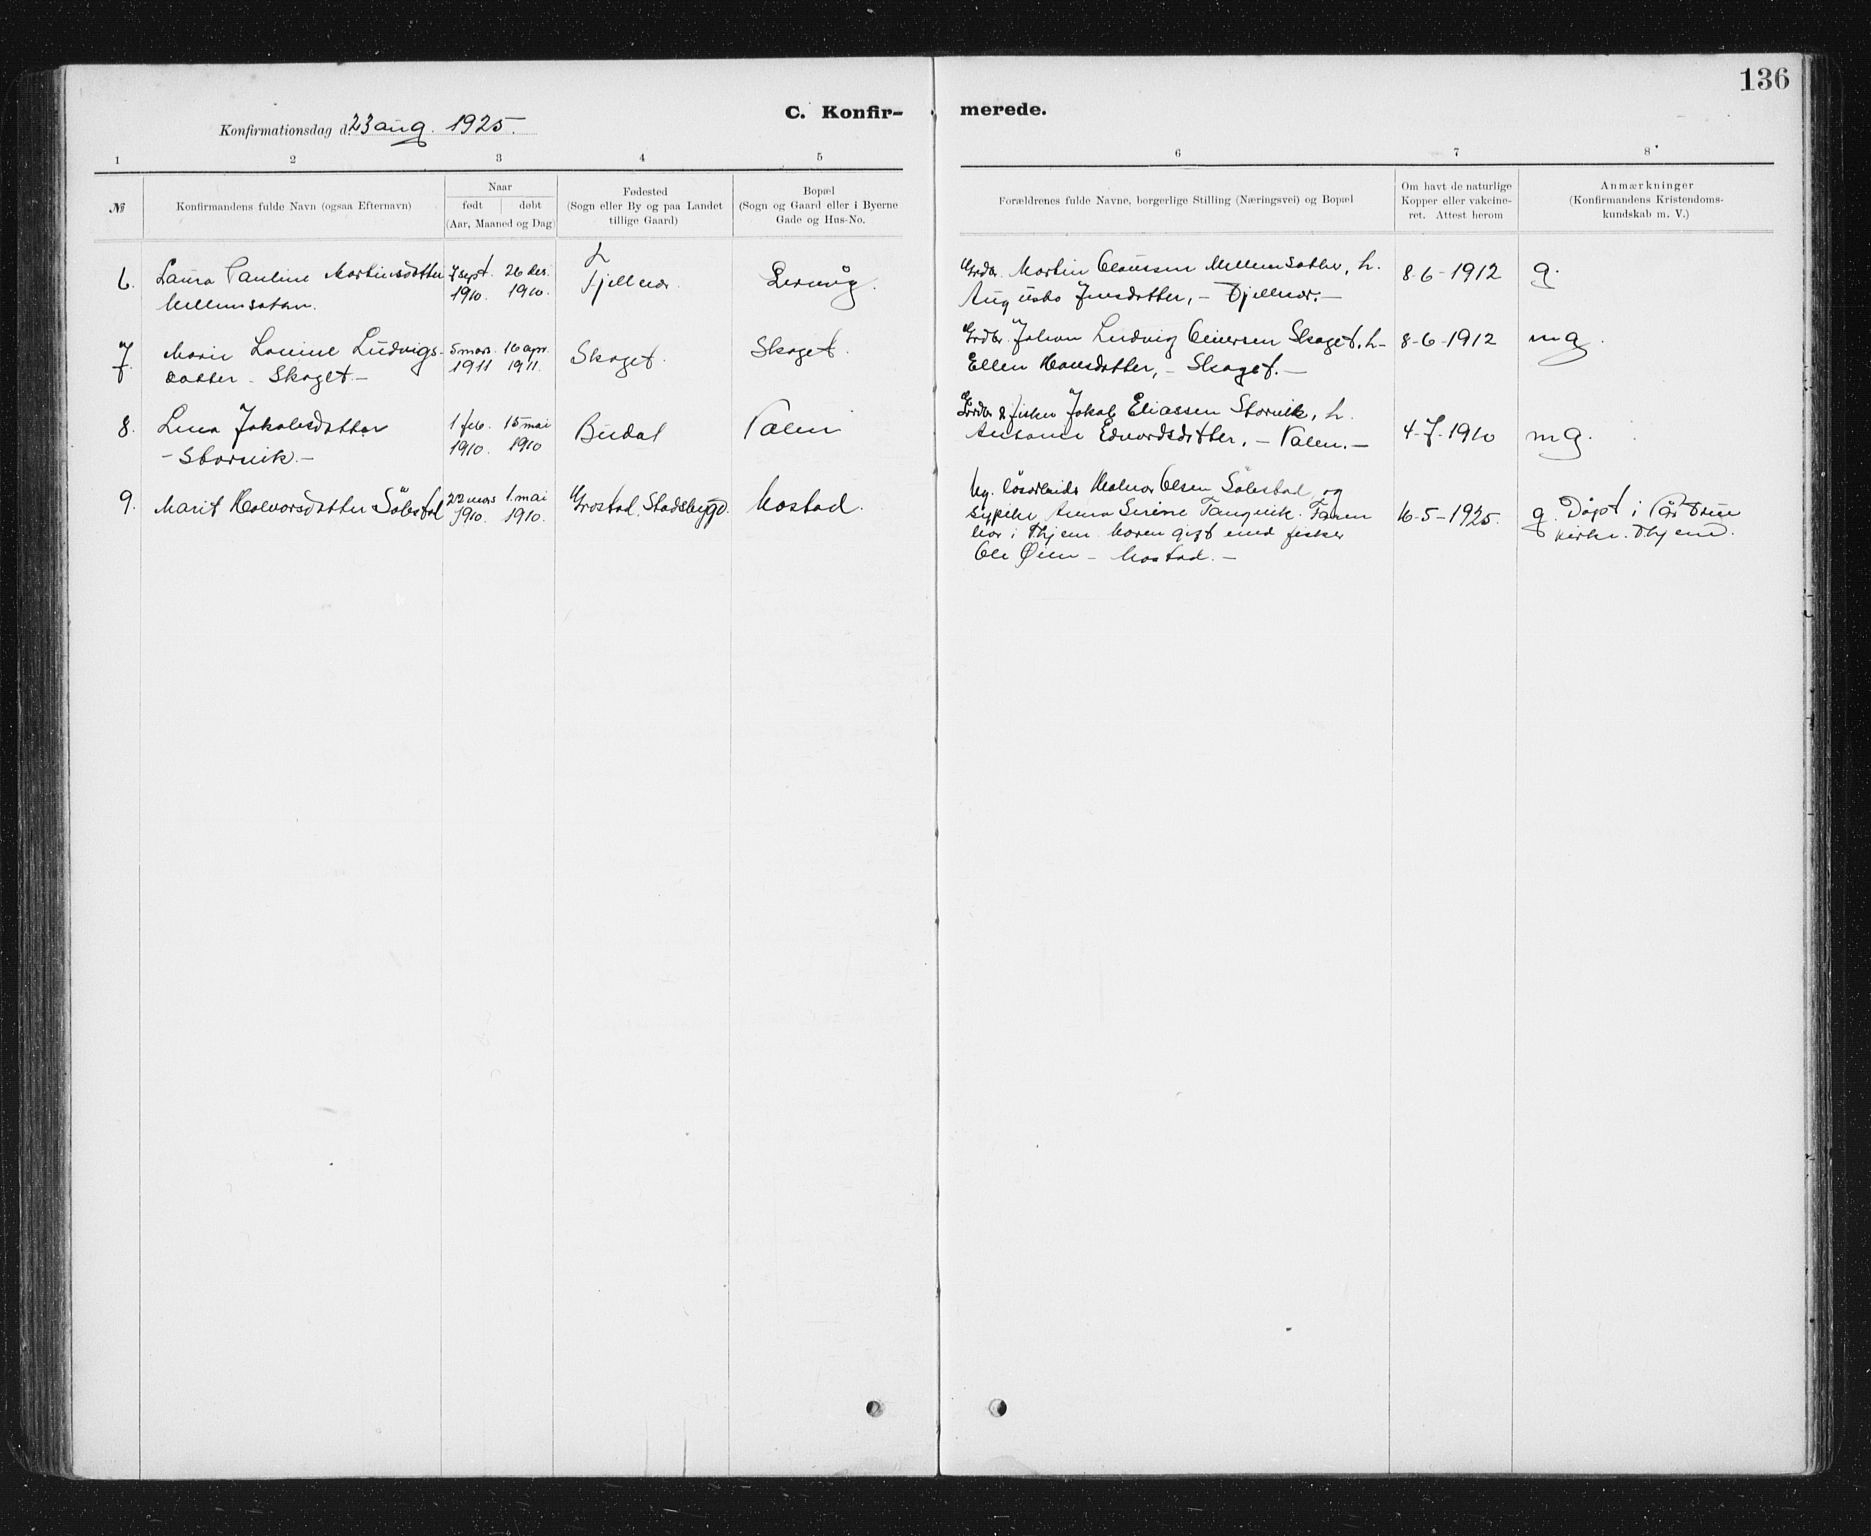 136
C. Konfir-
merede.
Konfirmationsdag d. 23 aug. 1925.
1 2 3 4 5 6 7 8
№
Konfirmandens fulde Navn (ogsaa Efternavn)
Naar
født døbt
(Aar, Maaned og Dag)
Fødested
(Sogn eller By og paa Landet
tillige Gaard)
Bopæl
(Sogn og Gaard eller i Byerne
Gade og Hus-No.
Forældrenes fulde Navne, borgerlige Stilling (Næringsvei) og Bopæl
Om havt de naturlige
Kopper eller vakcine-
ret. Attest herom
Anmærkninger
(Konfirmandens Kristendoms-
kundskab m. V.)
6. Laura Pauline Martinsdatter 7 sept. 26 des. Fjellvær. Martin Claussen Mellemsæther, h. 8-6-1912 g.
1910. 1910. Augusta Jensdatter, - Fjellvær. -
7. Marie Louise Ludvigs- 5 mars 16 apr. Skaget. Skaget. Grdbr. Johan Ludvig Skaget, h. 8-6-1912 mg.
datter - Skaget - 1911 1911. Ellen Hansdatter, - Skaget. -
8. Lina Jakobsdatter 1 feb. 15 mai Valen Grdbr & fisker Jakob Eliassen Storvik, h. 4-7-1910 mg.
- Storvik. - 1910. 1910 Edvardsdatter, - Valen. -
9. Marit Halvorsdatter Sölestad 22 mars 1. mai Grostad, Stadsbygd. Mostad. Ug. løsarbeider Halvor Olsen Sölestad og
1910. 1910. Anna Serine Tangvik. Faren 16-5-1925. g. Døpt i Vår Frue
bor i Thjem. Moren gift med fisker kirke. Thjem.
Ole Øien - Mostad. -